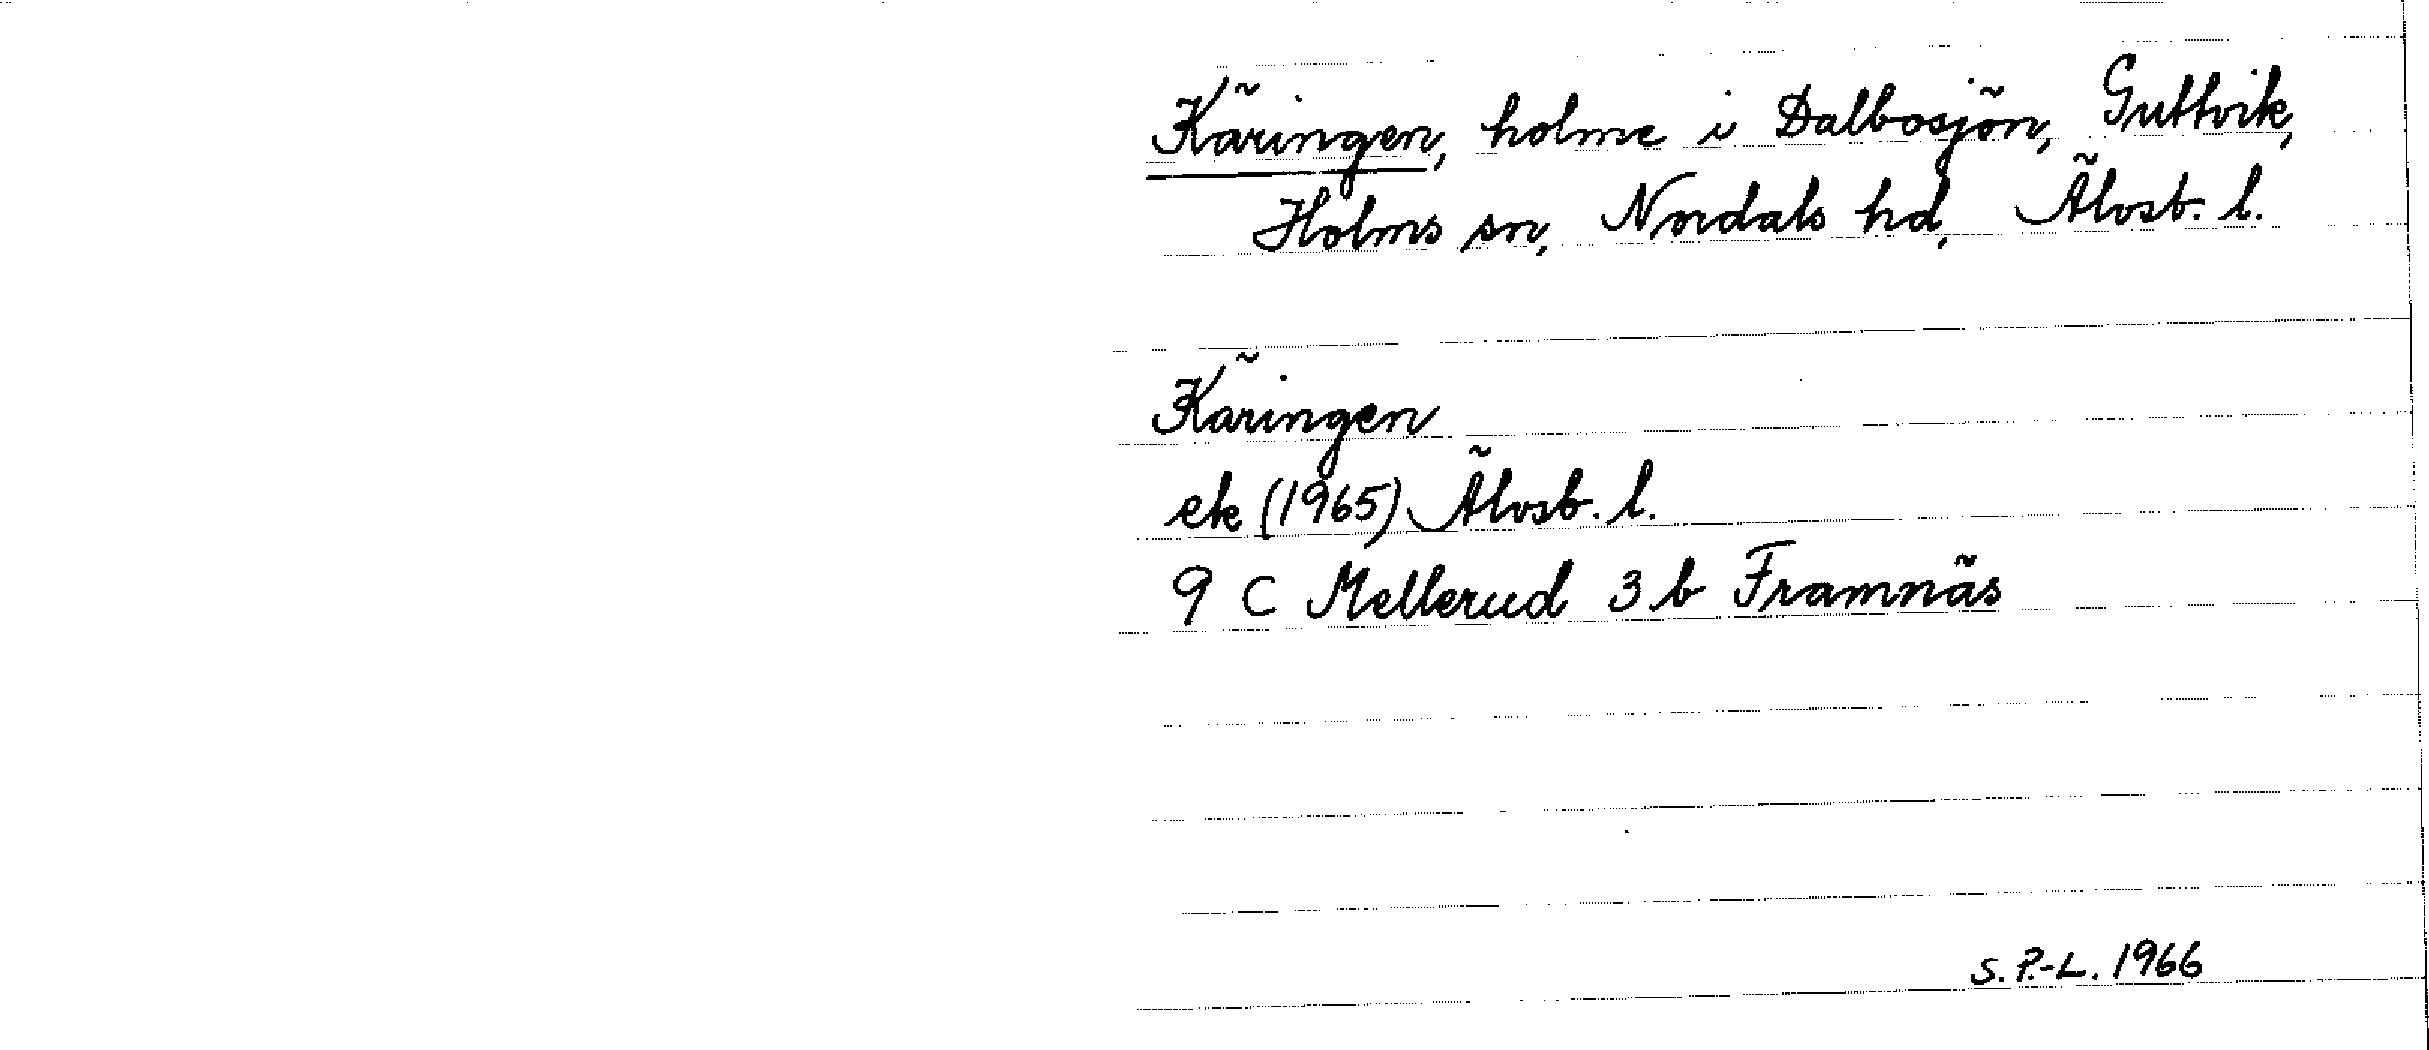 Käringen, holme i Dalbosjön, Guttvik,
Holms sn, Nordals hd, Älvsb. l.
Käringen
ek (1965) Älvsb. l.
9 C Mellerud 3 b Framnäs
S. P.-L. 1966